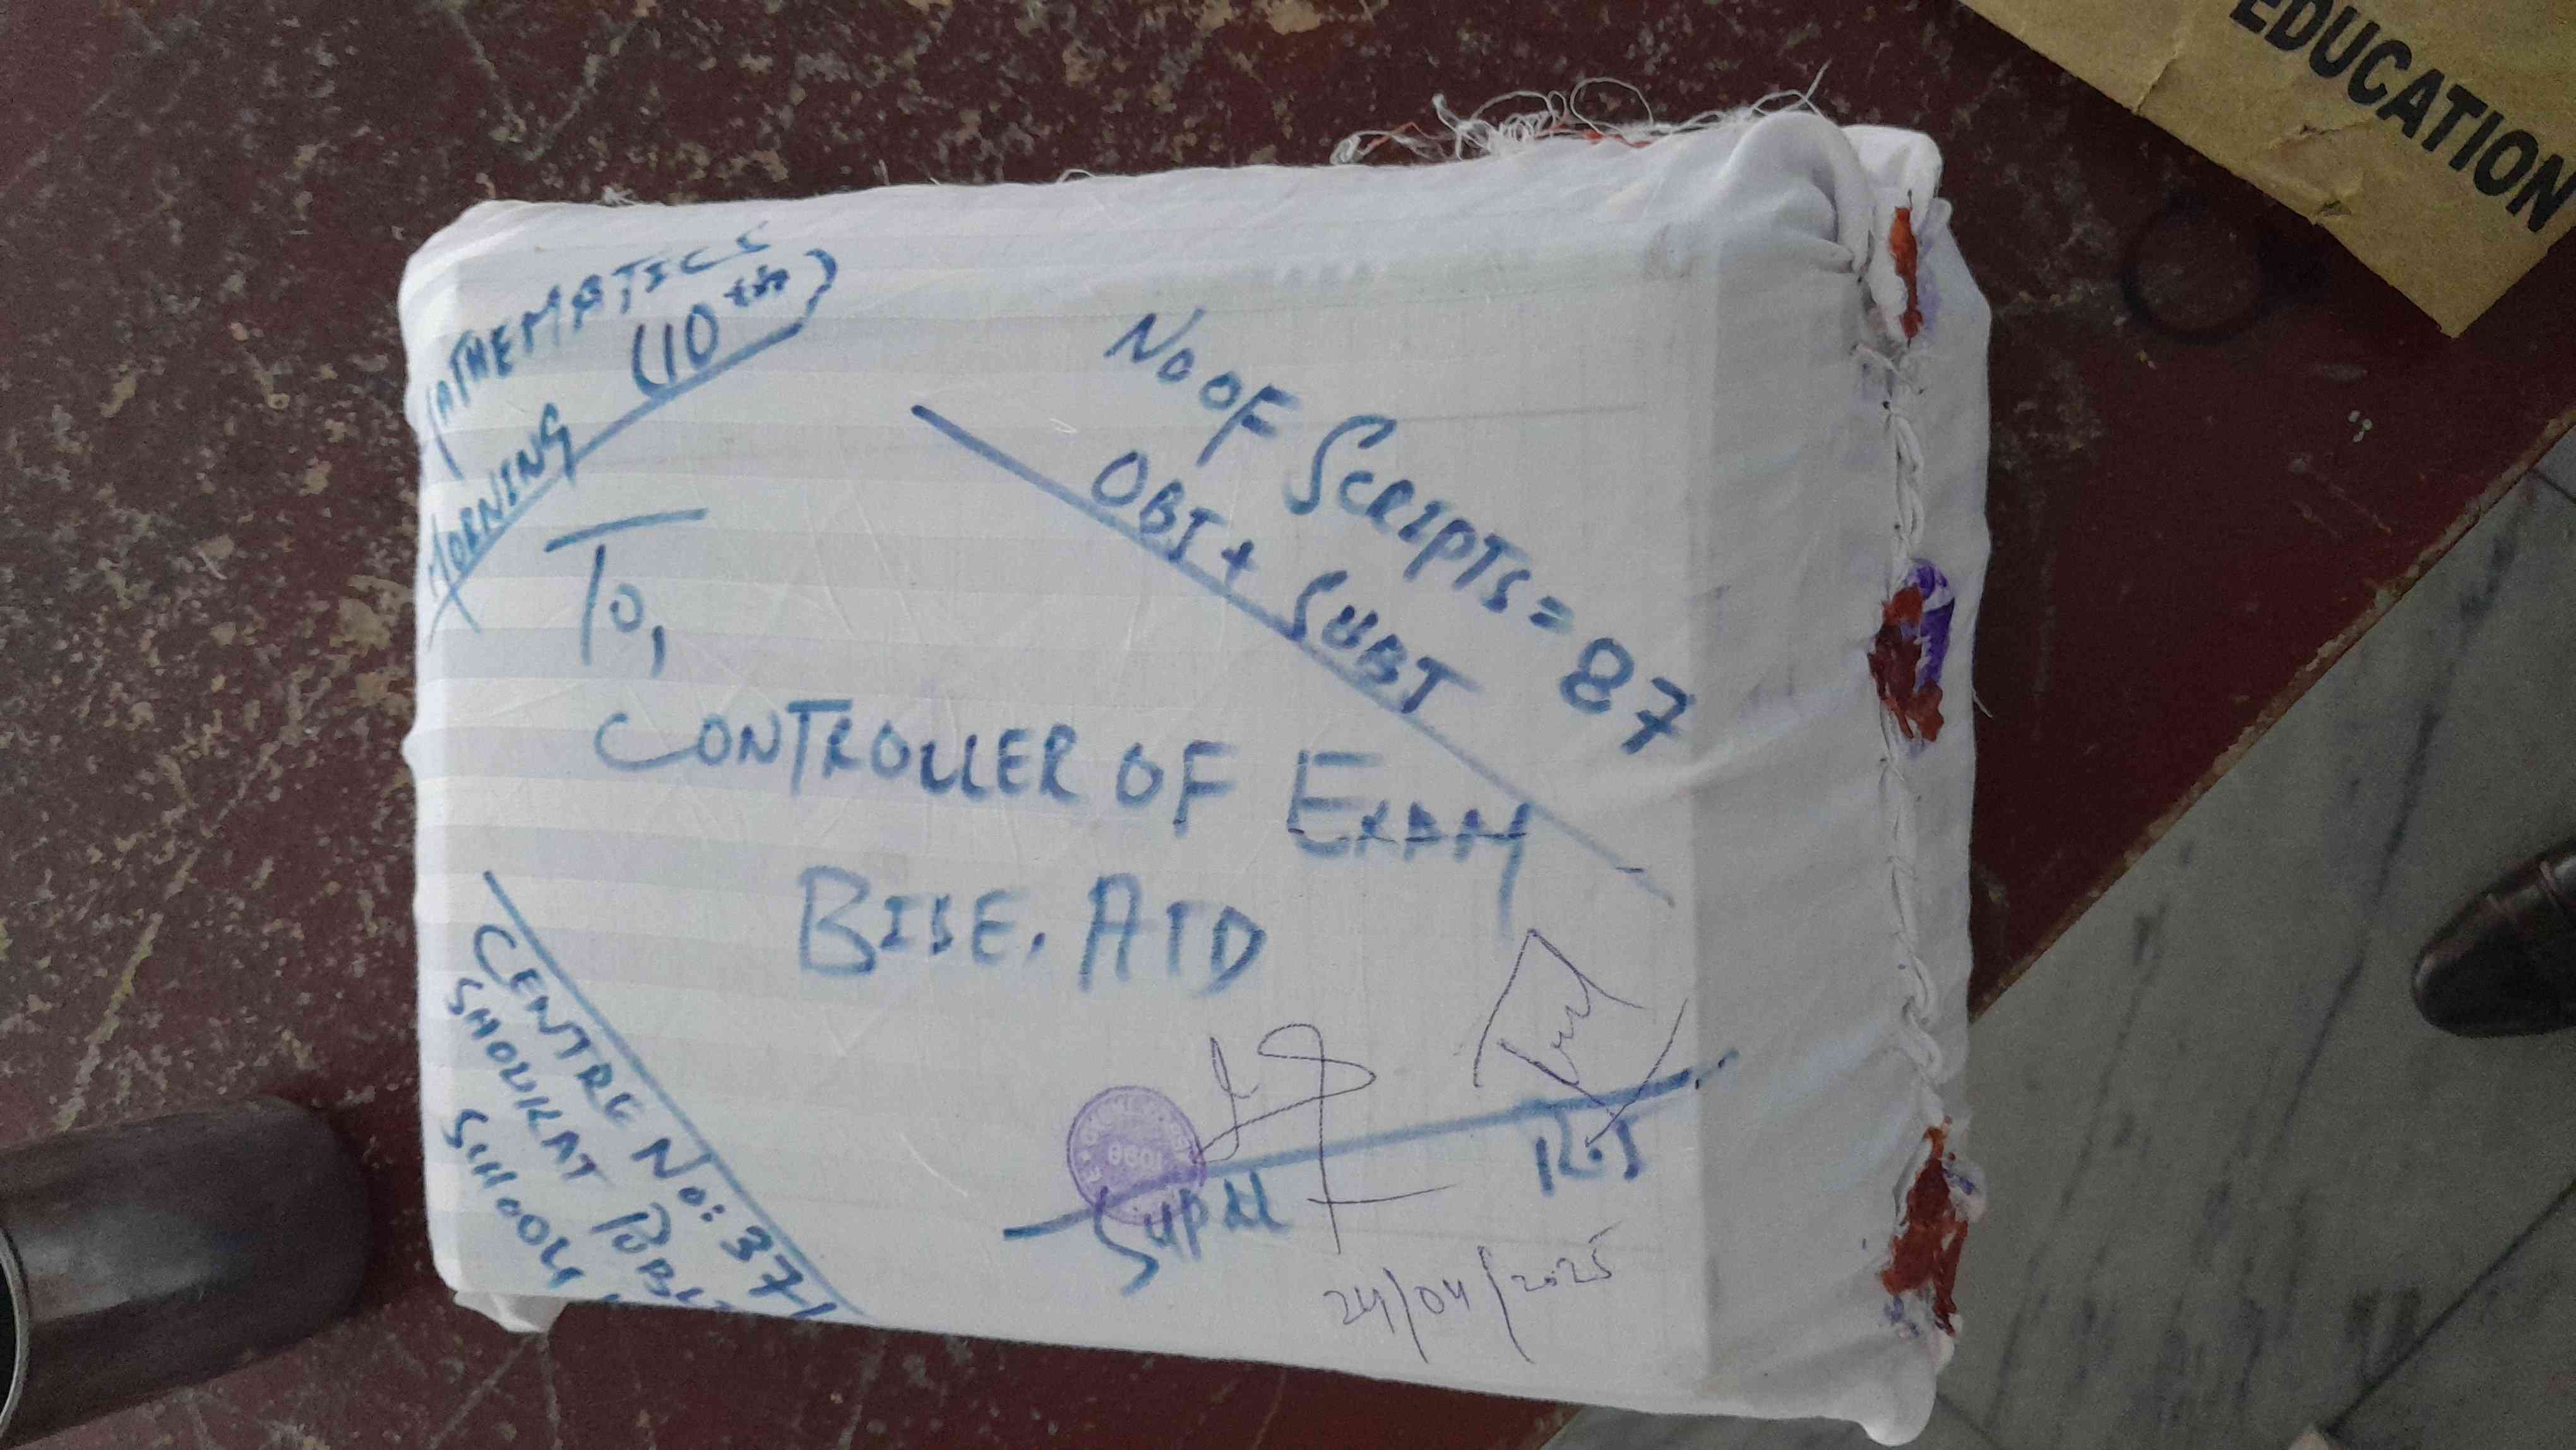 MATHEMATICS
(10th)
MORNING
No OF SCRIPTS = 87
OBJ + SUBJ
To,
CONTROLLER OF EXAM
BISE. ATD
CENTRE No: 371
SHOUKAT PUBLIC
SCHOOL
Supdt
R.I
24/04/2025
EDUCATION